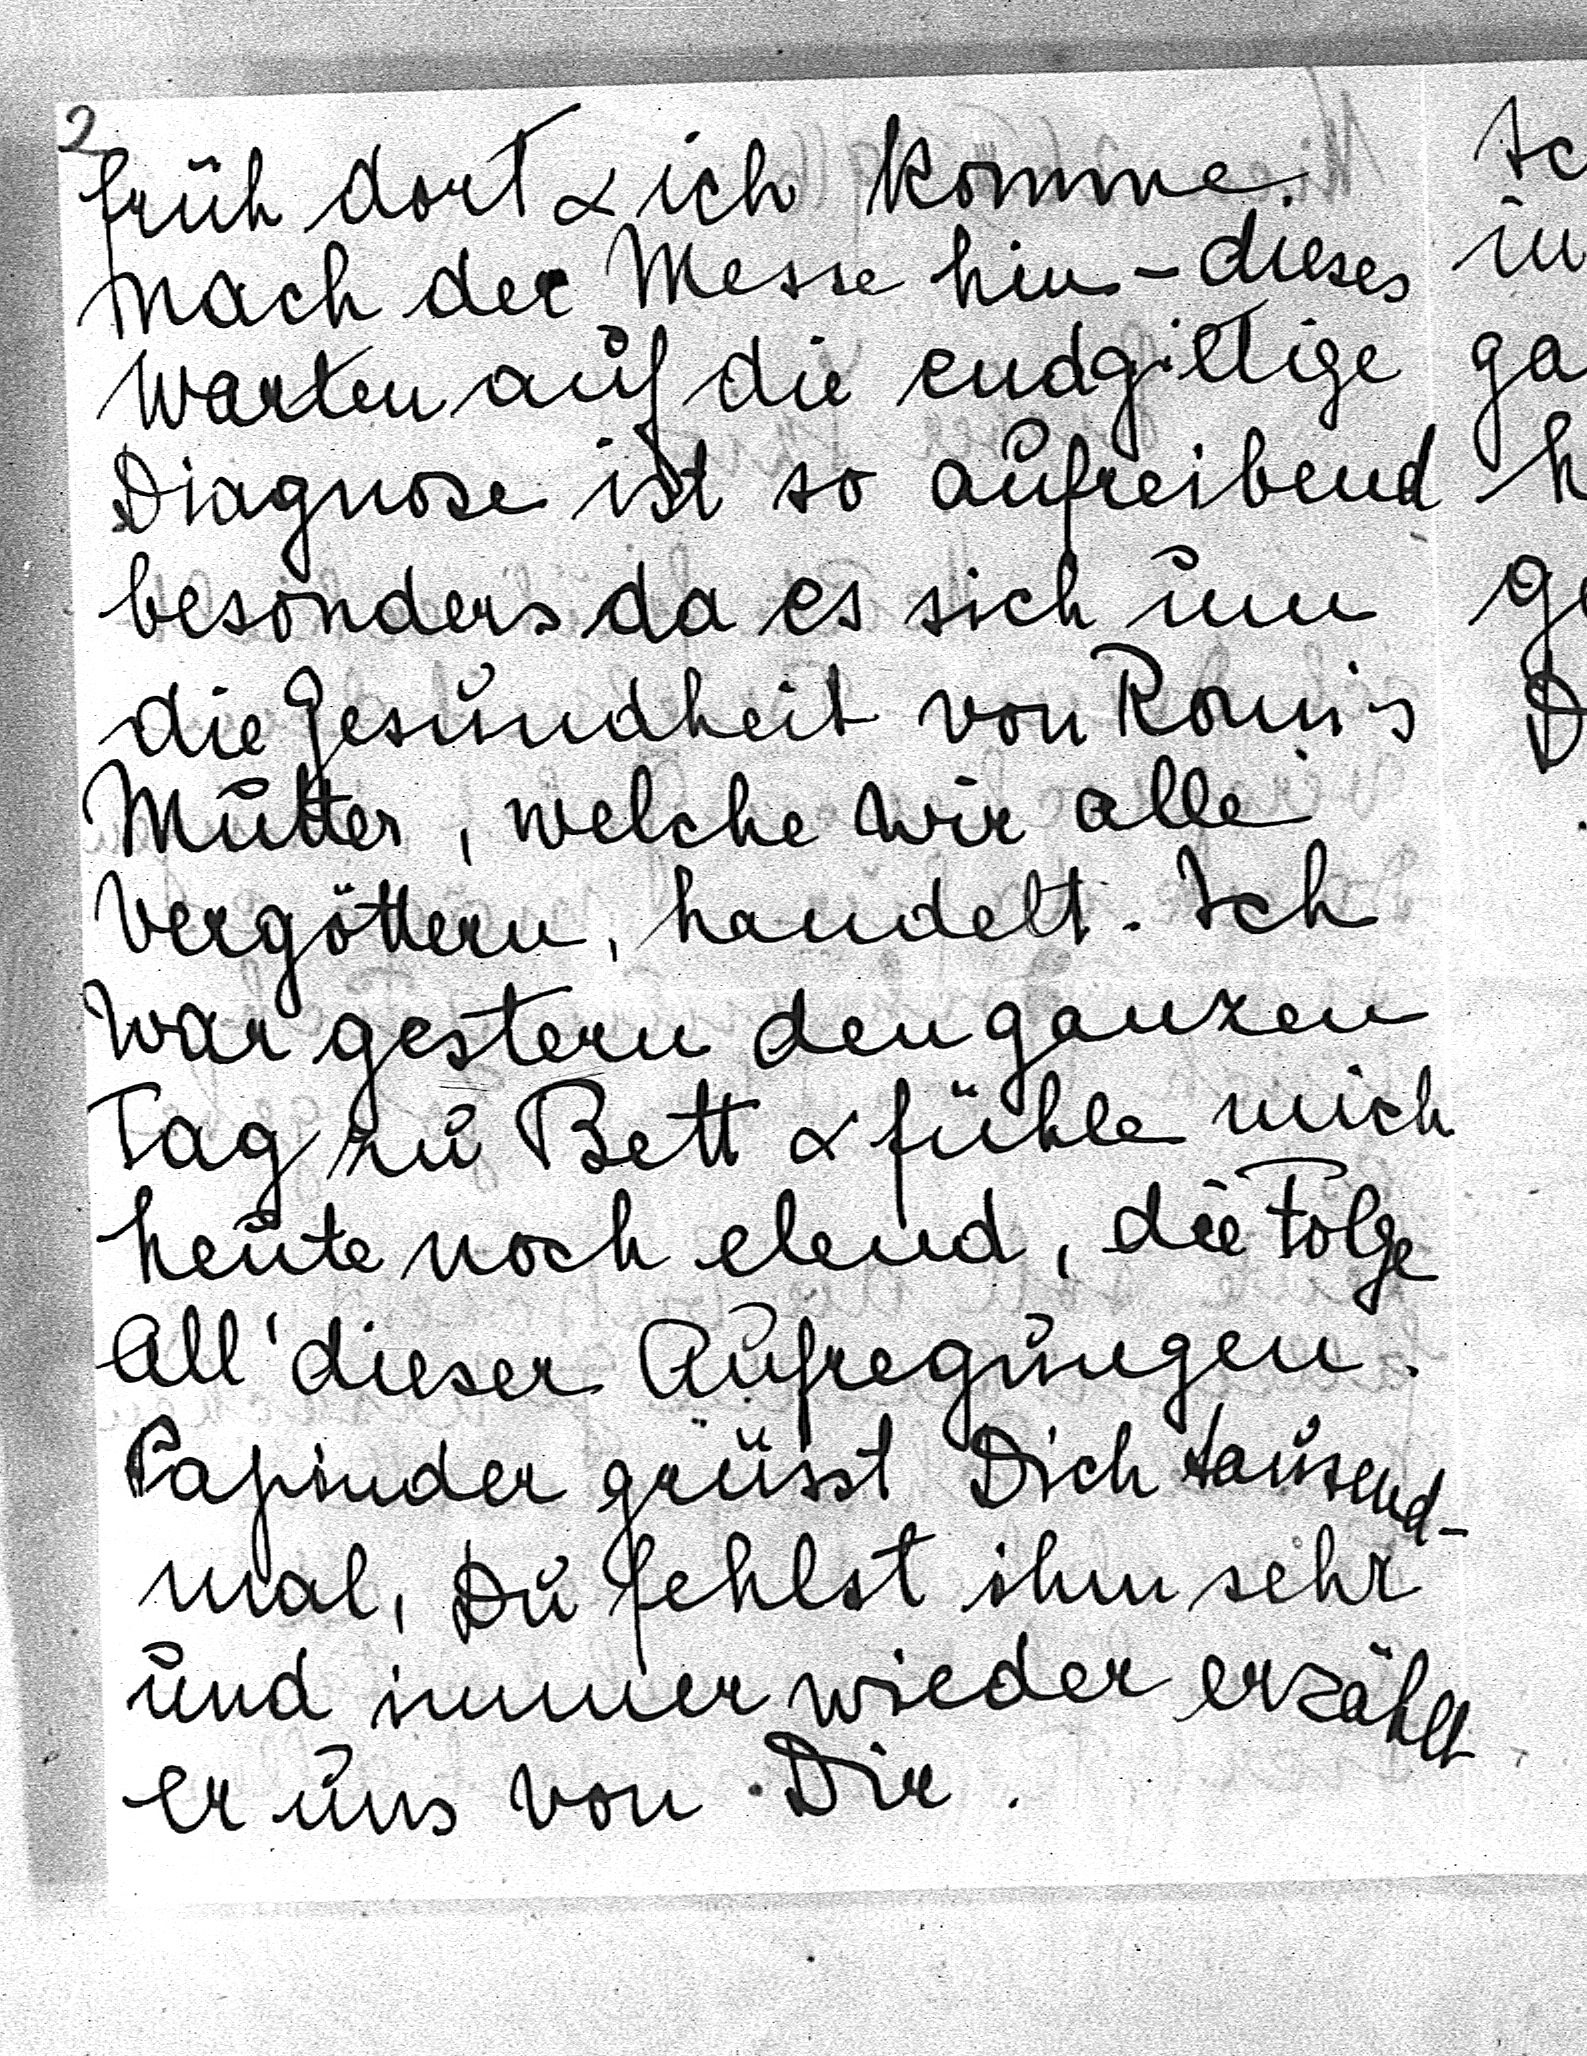 2
früh dort & ich komme
nach der Messe hin - dieses
Warten auf die endgiltige
Diagnose ist so aufreibend
besonders da es sich um
die Gesundheit von Romis
Mutter, welche wir alle
vergöttern, handelt. Ich
war gestern den ganzen
Tag zu Bett & fühle mich
heute noch elend, die Folge
all' dieser Aufregungen.
Papinder grüsst Dich tausend-
mal, Du fehlst ihm sehr
und immer wieder erzählt
er uns von Dir.